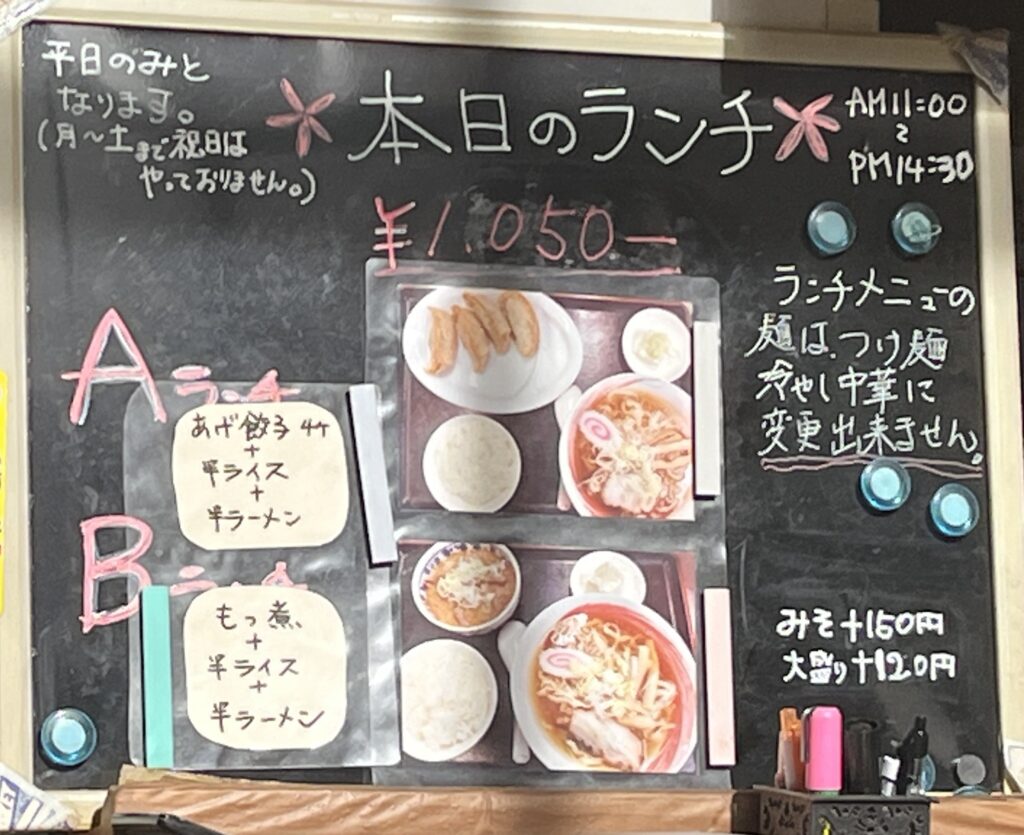 平日のみと
なります。
(月～土まで祝日は
やっておりません。)
本日のランチ
AM11:00
～
PM14:30
¥1,050ー
Aランチ
あげ餃子4ケ
+
半ライス
+
半ラーメン
Bランチ
もつ煮
+
半ライス
+
半ラーメン
ランチメニューの
麺は、つけ麺
冷やし中華に
変更出来ません。
みそ+150円
大盛り+120円